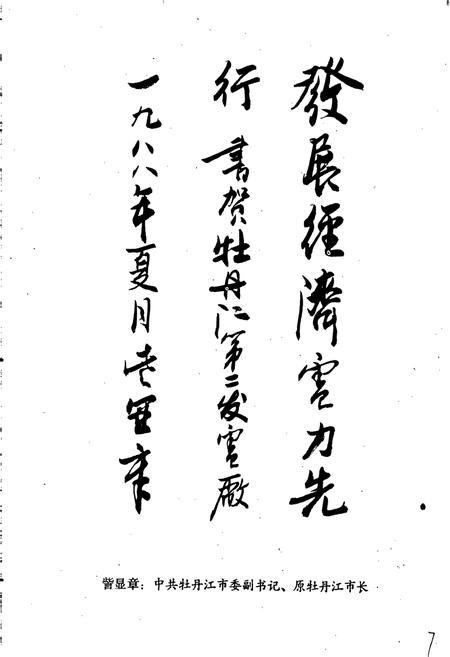 發展經濟電力先
行 書贺牡丹江第二发電廠
一九八八年夏月訾显章
訾显章：中共牡丹江市委副书记、原牡丹江市长
7